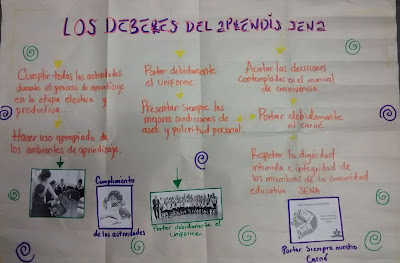 LOS DEBERES DEL APRENDIS SENA
Cumplir todas las actividades
durante el proceso de aprendizaje
en la etapa electiva y
productiva.
Hacer uso apropiado de
los ambientes de aprendizaje.
Portar debidamente
el Uniforme
Presentar siempre las
mejores condiciones de
aseo y pulcritud personal.
Acatar las decisiones
contempladas en el manual
de convivencia
Portar debidamente
el carné
Respetar la dignidad
intimida e integridad de
los miembros de la comunidad
educativa SENA
Cumplimiento
de las actividades
Portar debidamente el
Uniforme
Portar siempre nuestro
Carné